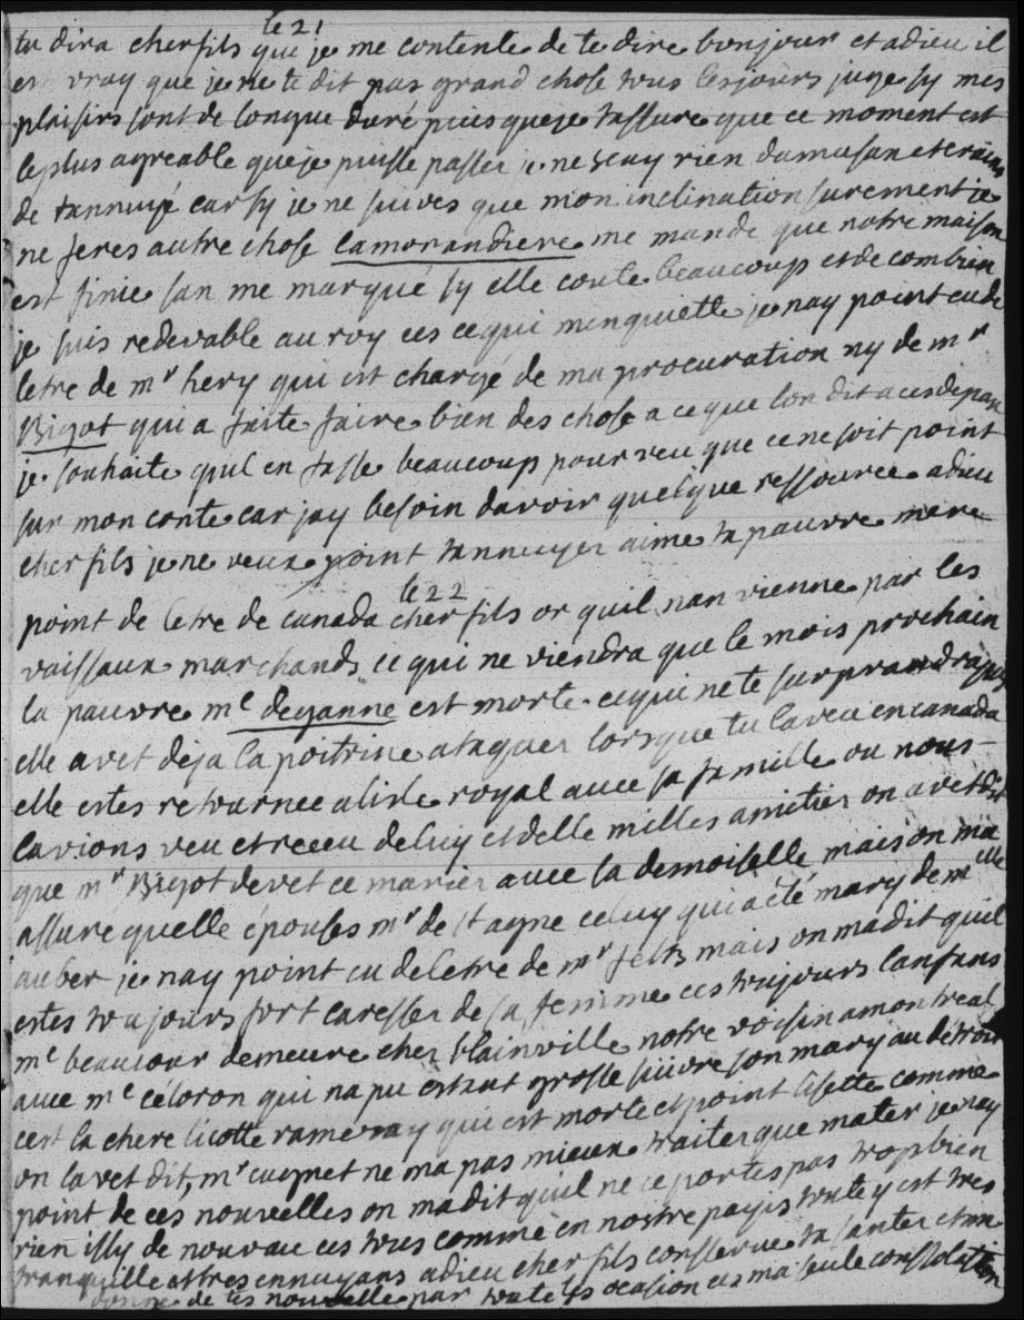 le 21
tu dira cher fils que je me contente de te dire bonjour et adieu il
est vray que je ne te dit pas grand chose tous les jours juge sy mes
plaisirs sont de longue duré puis que je tassure que ce moment est
le plus agreable que je puisse passer je ne scay rien damusan et crains
de tannuyé car sy je ne suives que mon inclination surement je
ne feres autre chose lamorandiere me mande que notre maison
est finie san me marqué sy elle coute beaucoup et de combien
je suis redevable au roy ces ce qui minquiette je nay point eu de
letre de mr hery qui est chargé de ma procuration ny de mr
Bigot qui a faite faire bien des chose a ce que lon dit a ces depan
je souhaite quil en fasse beaucoup pourveu que ce ne soit point
sur mon conte car jay besoin davoir quelque ressource adieu
cher fils je ne veux point tannuyer aime ta pauvre mere
le 22
point de letre de canada cher fils or quil nan vienne par les
vaissaux marchands ce qui ne viendra que le mois prochain
la pauvre me deganne est morte ce qui ne te surprandra pas
elle avet deja la poitrine ataquer lorsque tu laveu en canada
elle estes retournee a lisle royal avec sa famille ou nous
lavions veu et receu de luy et delle milles amitier on avet dit
que mr Bigot devet ce marier avec la demoiselle mais on ma
assure quelle épouses mr de st agne celuy qui a été mary de melle
auber je nay point eu de letre de mr feltz mais on ma dit quil
estes toujours fort caresser de sa femme ces toujours lanfans
me beaucour demeure cher blainville notre voisin a montreal
avec me céloron qui na pu estant grosse suivre son mary au détroit
cest la chere licotte ramezay qui est morte et point lisette comme
on lavet dit, mr cugnet ne ma pas mieux traiter que mater je nay
point de ces nouvelles on ma dit quil ne ce portes pas trop bien
rien issy de nouvau ces tous comme en nostre payis toute y est tres
tranquille et tres ennuyans adieu cher fils conserve ta santer et me
donne de tes nouvelle par toute les ocasion ces ma seule conssolation